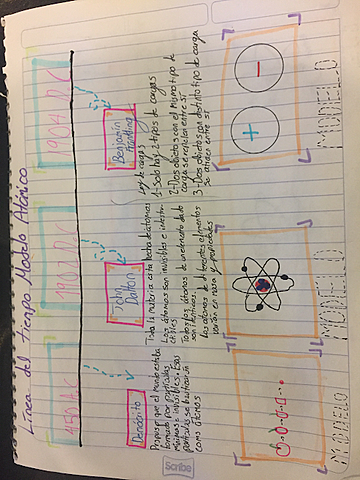 Línea del tiempo Modelo Atómico
450 A.C
Demócrito
Propuso que el mundo estaba
formado por partículas
mínimas e invisibles. Esas
partículas se bautizarón
como átomos
MODELO
John
Dalton
Toda la materia esta hecha de átomos
Los átomos son invisibles e indestru-
ctibles
Todos los átomos de un elemento dado
son identicos
Los atomos de diferentes elementos
varían en masa y propiedades
MODELO
1904 D.C
Benjamin
Franklin
Ley de cargas
1-Solo hay 2 tipos de cargas
2-Dos objetos con el mismo tipo de
carga se repelen entre sí
3-Dos objetos con distinto tipo de carga
se atraen entre sí
+
-
MODELO
Scribe